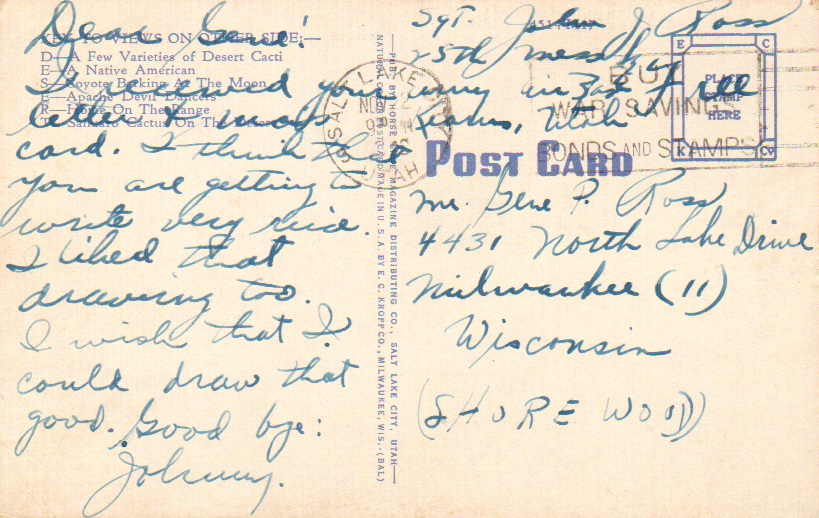 Dear Gene:
I received your
letter and
card. I think that
you are getting to
write very nice.
I liked that
drawing too.
I wish that I
could draw that
good. Good bye:
Johnny.
KEY TO VIEWS ON OTHER SIDE:—
D—A Few Varieties of Desert Cacti
E—A Native American
S—Coyote Barking At The Moon
E—Apache Devil Dancers
R—Home On The Range
T—Sahuaro Cactus On The Desert
PUB. BY HORSE MAGAZINE DISTRIBUTING CO., SALT LAKE CITY, UTAH
NATIONAL POSTCARD MADE IN U.S.A. BY E. C. KROPP CO., MILWAUKEE, WIS. (BAL)
Sgt. John J Ross
25th Mess
Army Air
Kearns, Utah
SALT LAKE
NOV
UTAH
BUY
WAR SAVINGS
BONDS AND STAMPS
E C
PLACE
STAMP
HERE
K Co
POST CARD
Mr. Gene P. Ross
4431 North Lake Drive
Milwaukee (11)
Wisconsin
(SHOREWOOD)